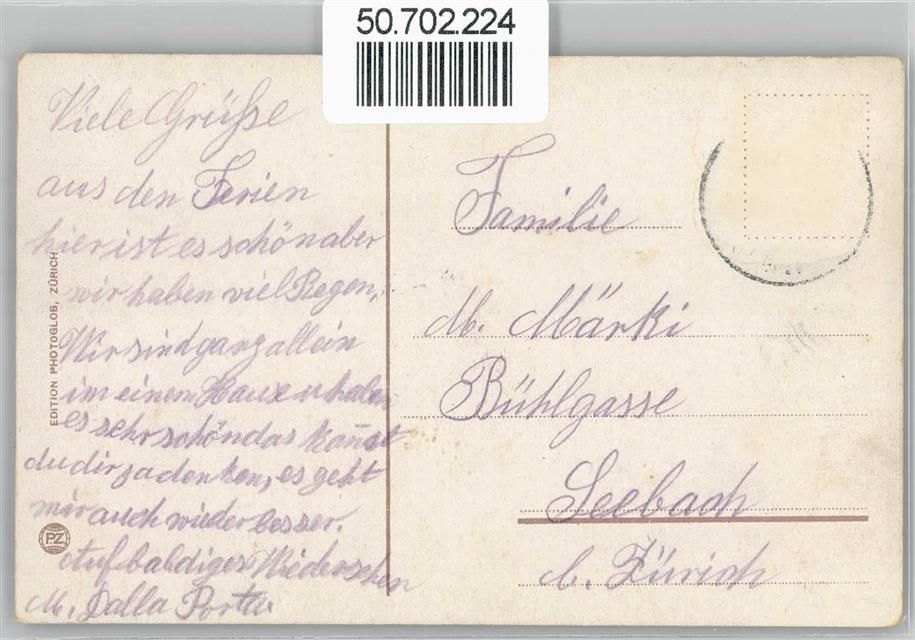 50.702.224
Viele Grüsse
aus den Ferien
hier ist es schön aber
wir haben viel Regen,
Wir sind ganz allein
im einem Hause u haben
es sehr schön das kannst
du dir ja denken, es geht
mir auch wieder besser.
Auf baldiges Wiedersehen
M. Dalla Porta.
EDITION PHOTOGLOB, ZÜRICH
P.Z.
Familie
M. Märki
Bühlgasse
Seebach
b. Zürich